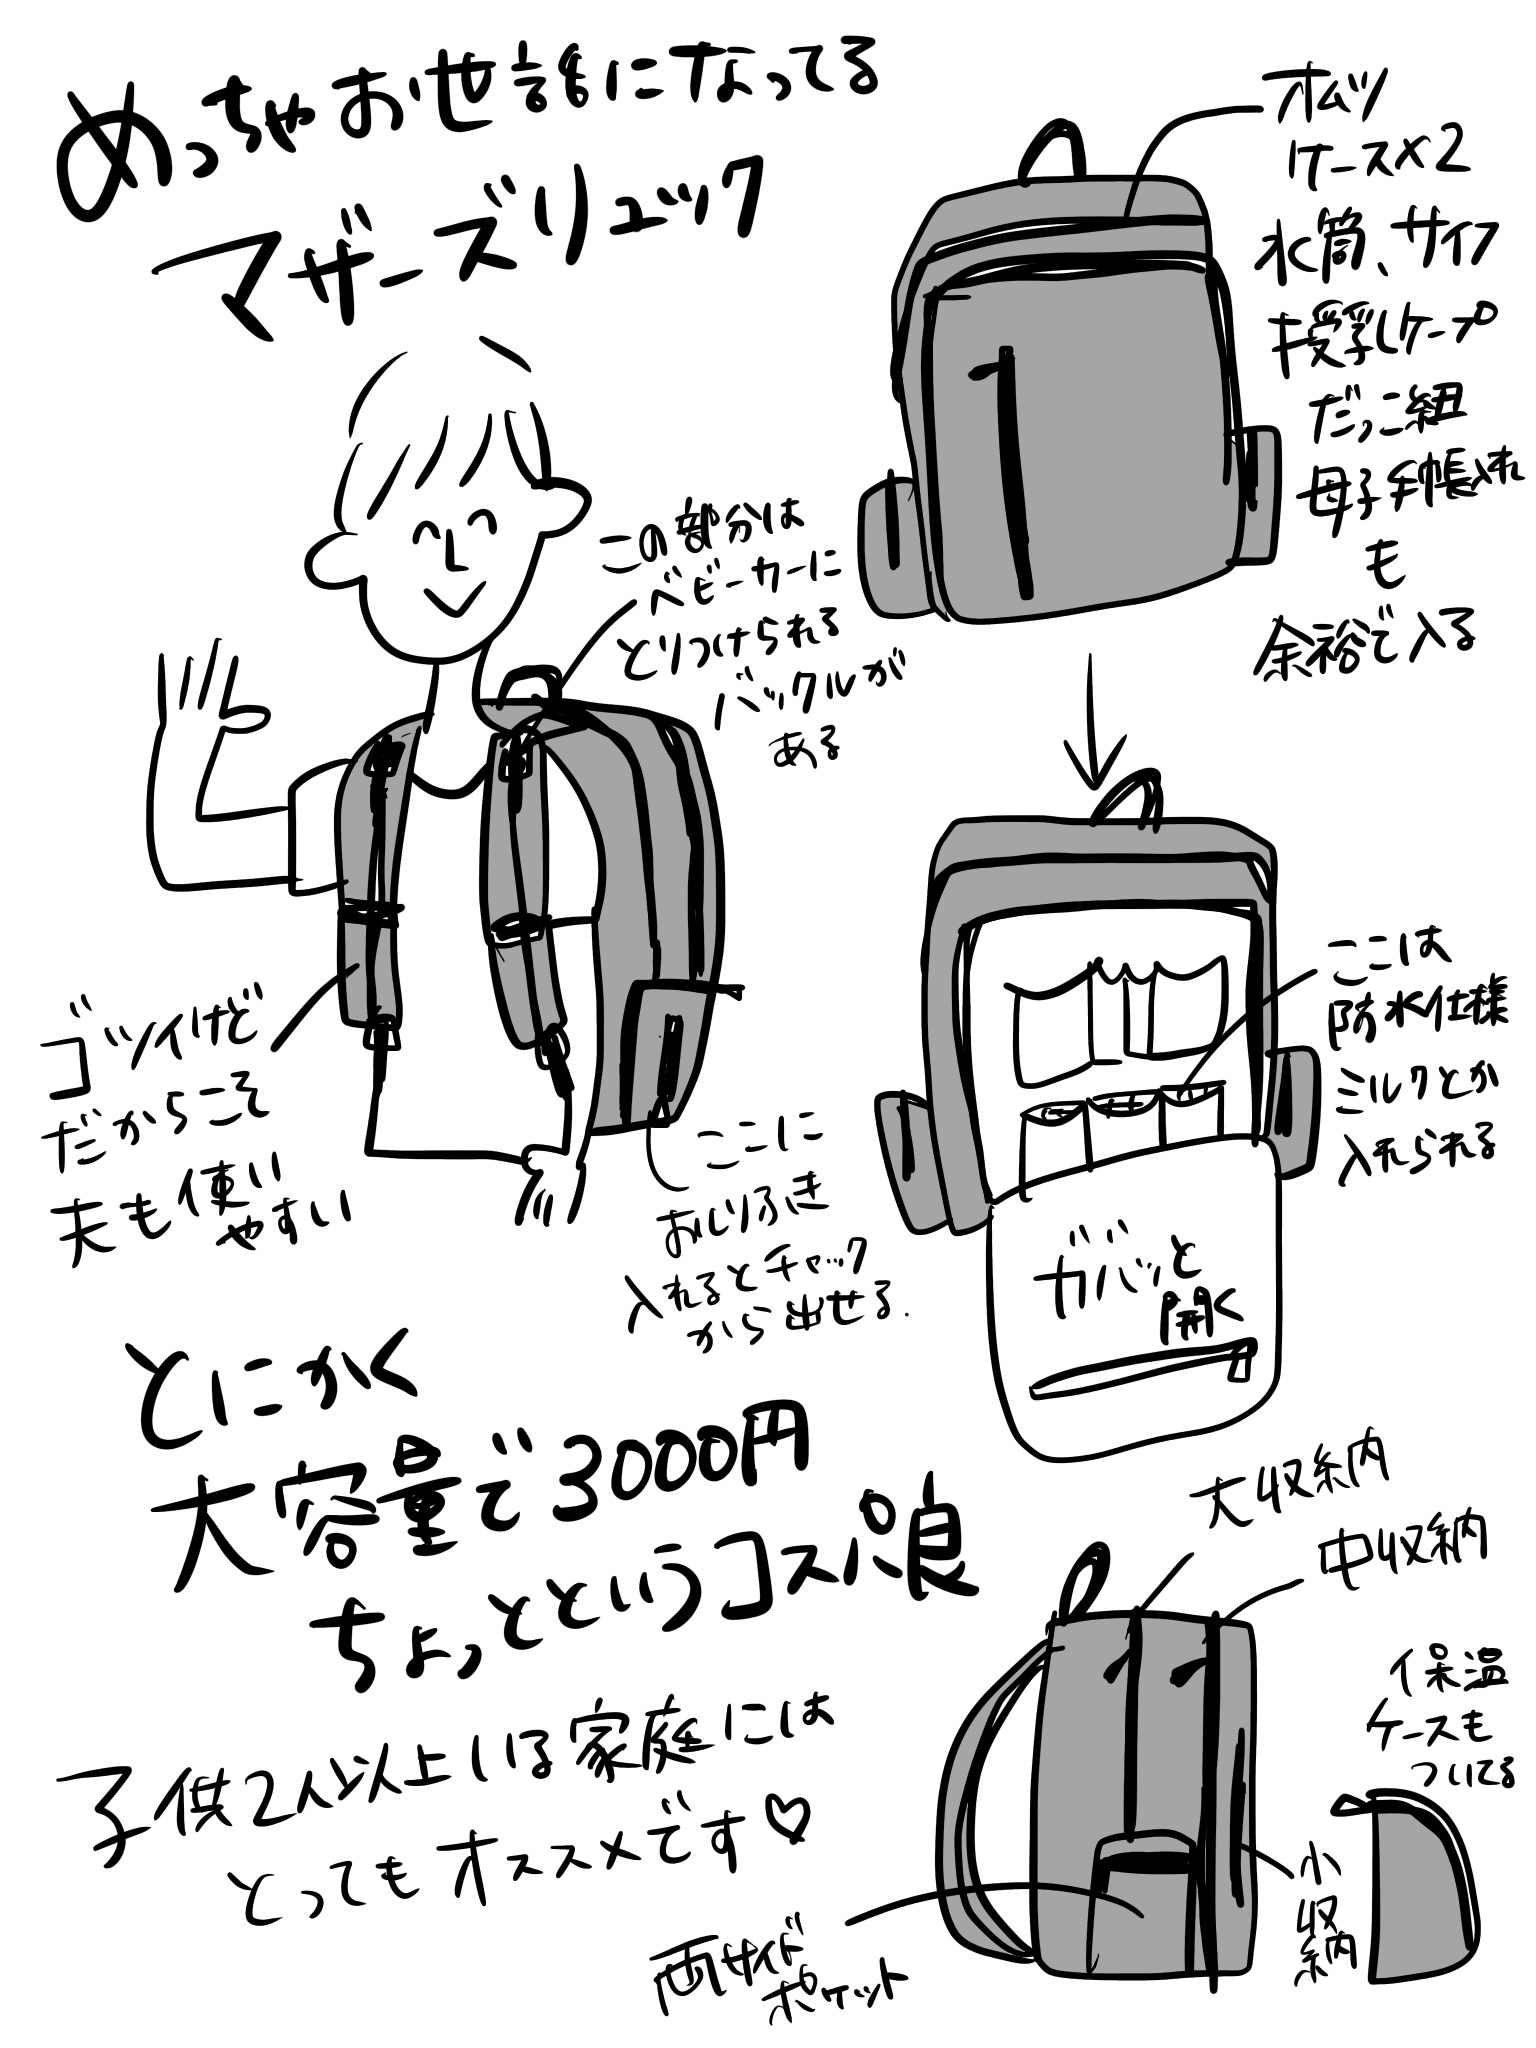 めっちゃお世話になってる
マザーズリュック
オムツ
ケース×2
水筒、サイフ
授乳ケープ
だっこ紐
母子手帳入れ
も
余裕で入る
この部分は
ベビーカーに
とりつけられる
バックルが
ある
ゴツイけど
だからこそ
夫も使い
やすい
ここに
おしりふき
入れるとチャック
から出せる.
ここは
防水仕様
ミルクとか
入れられる
ガバッと
開く
とにかく
大容量で3000円
ちょっとというコスパ良
子供2人以上いる家庭には
とってもオススメです♡
大収納
中収納
保温
ケースも
ついてる
小
収
納
両サイド
ポケット